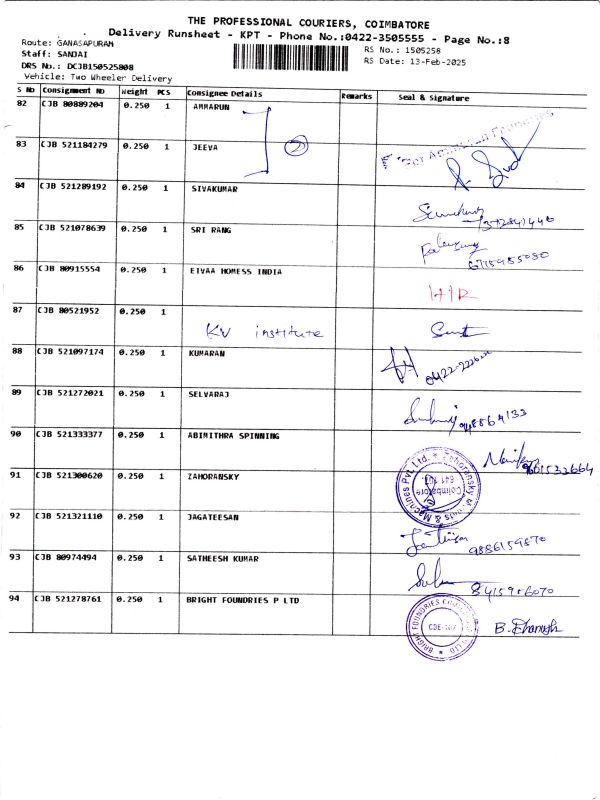 THE PROFESSIONAL COURIERS, COIMBATORE
Delivery Runsheet - KPT - Phone No.:0422-3505555 - Page No.:8
Route: GANASAPURAM
RS No.: 1505258
Staff: SANJAI
RS Date: 13-Feb-2025
DRS No.: DCJB150525808
Vehicle: Two Wheeler Delivery
S No Consignment No Weight PCS Consignee Details Remarks Seal & Signature
82 CJB 80889204 0.250 1 AMMARUN
83 CJB 521184279 0.250 1 JEEVA 2
84 CJB 521289192 0.250 1 SIVAKUMAR
85 CJB 521078639 0.250 1 SRI RANG
86 CJB 80915554 0.250 1 EIVAA HOMESS INDIA
87 CJB 80521952 0.250 1
KV institute
88 CJB 521097174 0.250 1 KUMARAN
89 CJB 521272021 0.250 1 SELVARAJ
90 CJB 521333377 0.250 1 ABIMITHRA SPINNING
91 CJB 521300620 0.250 1 ZAHORANSKY
92 CJB 521321110 0.250 1 JAGATEESAN
9886159870
93 CJB 80974494 0.250 1 SATHEESH KUMAR
94 CJB 521278761 0.250 1 BRIGHT FOUNDRIES P LTD
B. Dhanush